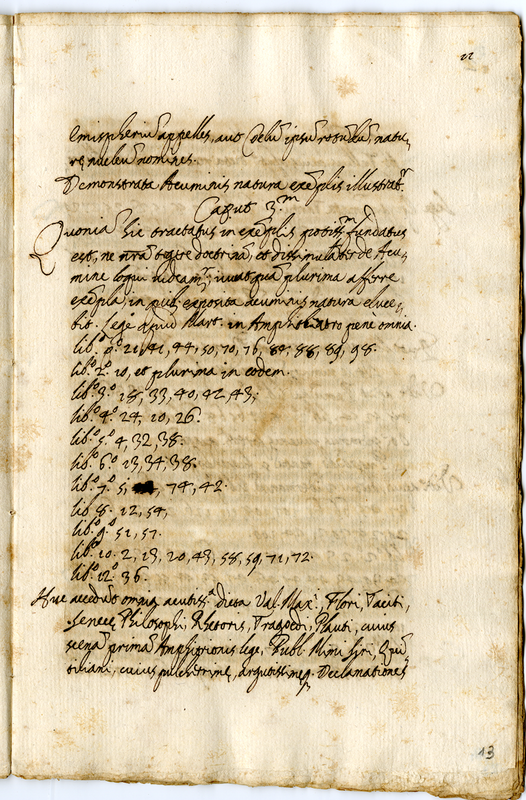 22
emispheriu appelles, aut Celu ipsu rotudu, natu
re nucleu nomines.
Demonstrata Acuminis natura exeplis illustrat.
Caput 3.m
Quonia hic tractatus in exeplis potiss.m fundatus
est, ne nra doctrina, et de Acu
mine loqui videam.r, iuvat qua plurima afferre
exepla, in quib. exposita acuminis natura eluce
bit. Lege apud Mart. in Amphiteatro penè omnia.
lib.o p.o 21, 41, 44, 50, 70, 76, 88, 89, 98.
lib.o 2.o 10, et plurima in eodem.
lib.o 3.o 18, 33, 40, 42, 43,
lib.o 4.o 24, 10, 26.
lib.o 5.o 4, 32, 38.
lib.o 6.o 13, 34, 38.
lib.o 7.o 5, 74, 42.
lib. 8. 12, 54,
lib.o 9.o 51, 57.
lib.o 10. 2, 13, 20, 43, 58, 59, 71, 72.
lib.o 12.o 36.
Huc accedut omniu acutiss.a dicta Val. Max., Flori, Taciti,
Senece Philosophi, Rhetoris, Tragoedi, Plauti, cuius
scena prima Amphitrionis lege, Publ. Mimi Siri, Qui
tiliani, cuius pulcerrime, argutissimeq. Declamationes
13